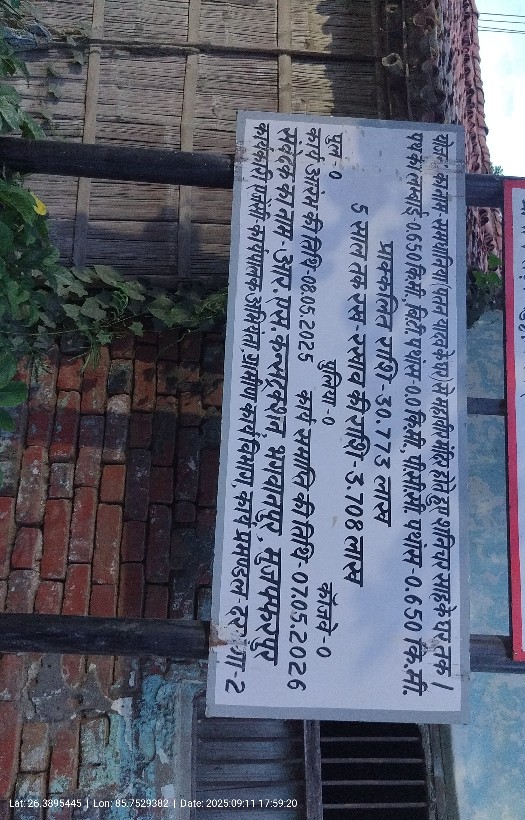 योजना का नाम- सरायपतिया चेतन यादव के घर से महावीर मंदिर होते हुए शनिचर साह के घर तक।
पथ का लम्बाई- 0.650 कि.मी., बिटी पथांस- 0.0 कि.मी., पीसीसी पथांस- 0.650 कि.मी.
प्राक्कलित राशि- 30.773 लाख
5 साल तक रख-रखाव की राशि- 3.708 लाख
पुल- 0 पुलिया- 0 कॉजवे- 0
कार्य आरंभ की तिथि- 08.05.2025 कार्य समाप्ति की तिथि- 07.05.2026
संवेदक का नाम- आर.एस. कन्सट्रक्शन, भगवानपुर, मुजफ्फरपुर
कार्यकारी एजेंसी- कार्यपालक अभियंता, ग्रामीण कार्य विभाग, कार्य प्रमण्डल दरभंगा-2
Lat: 26.3895445 | Lon: 85.7529382 | Date: 2025:09:11 17:59:20